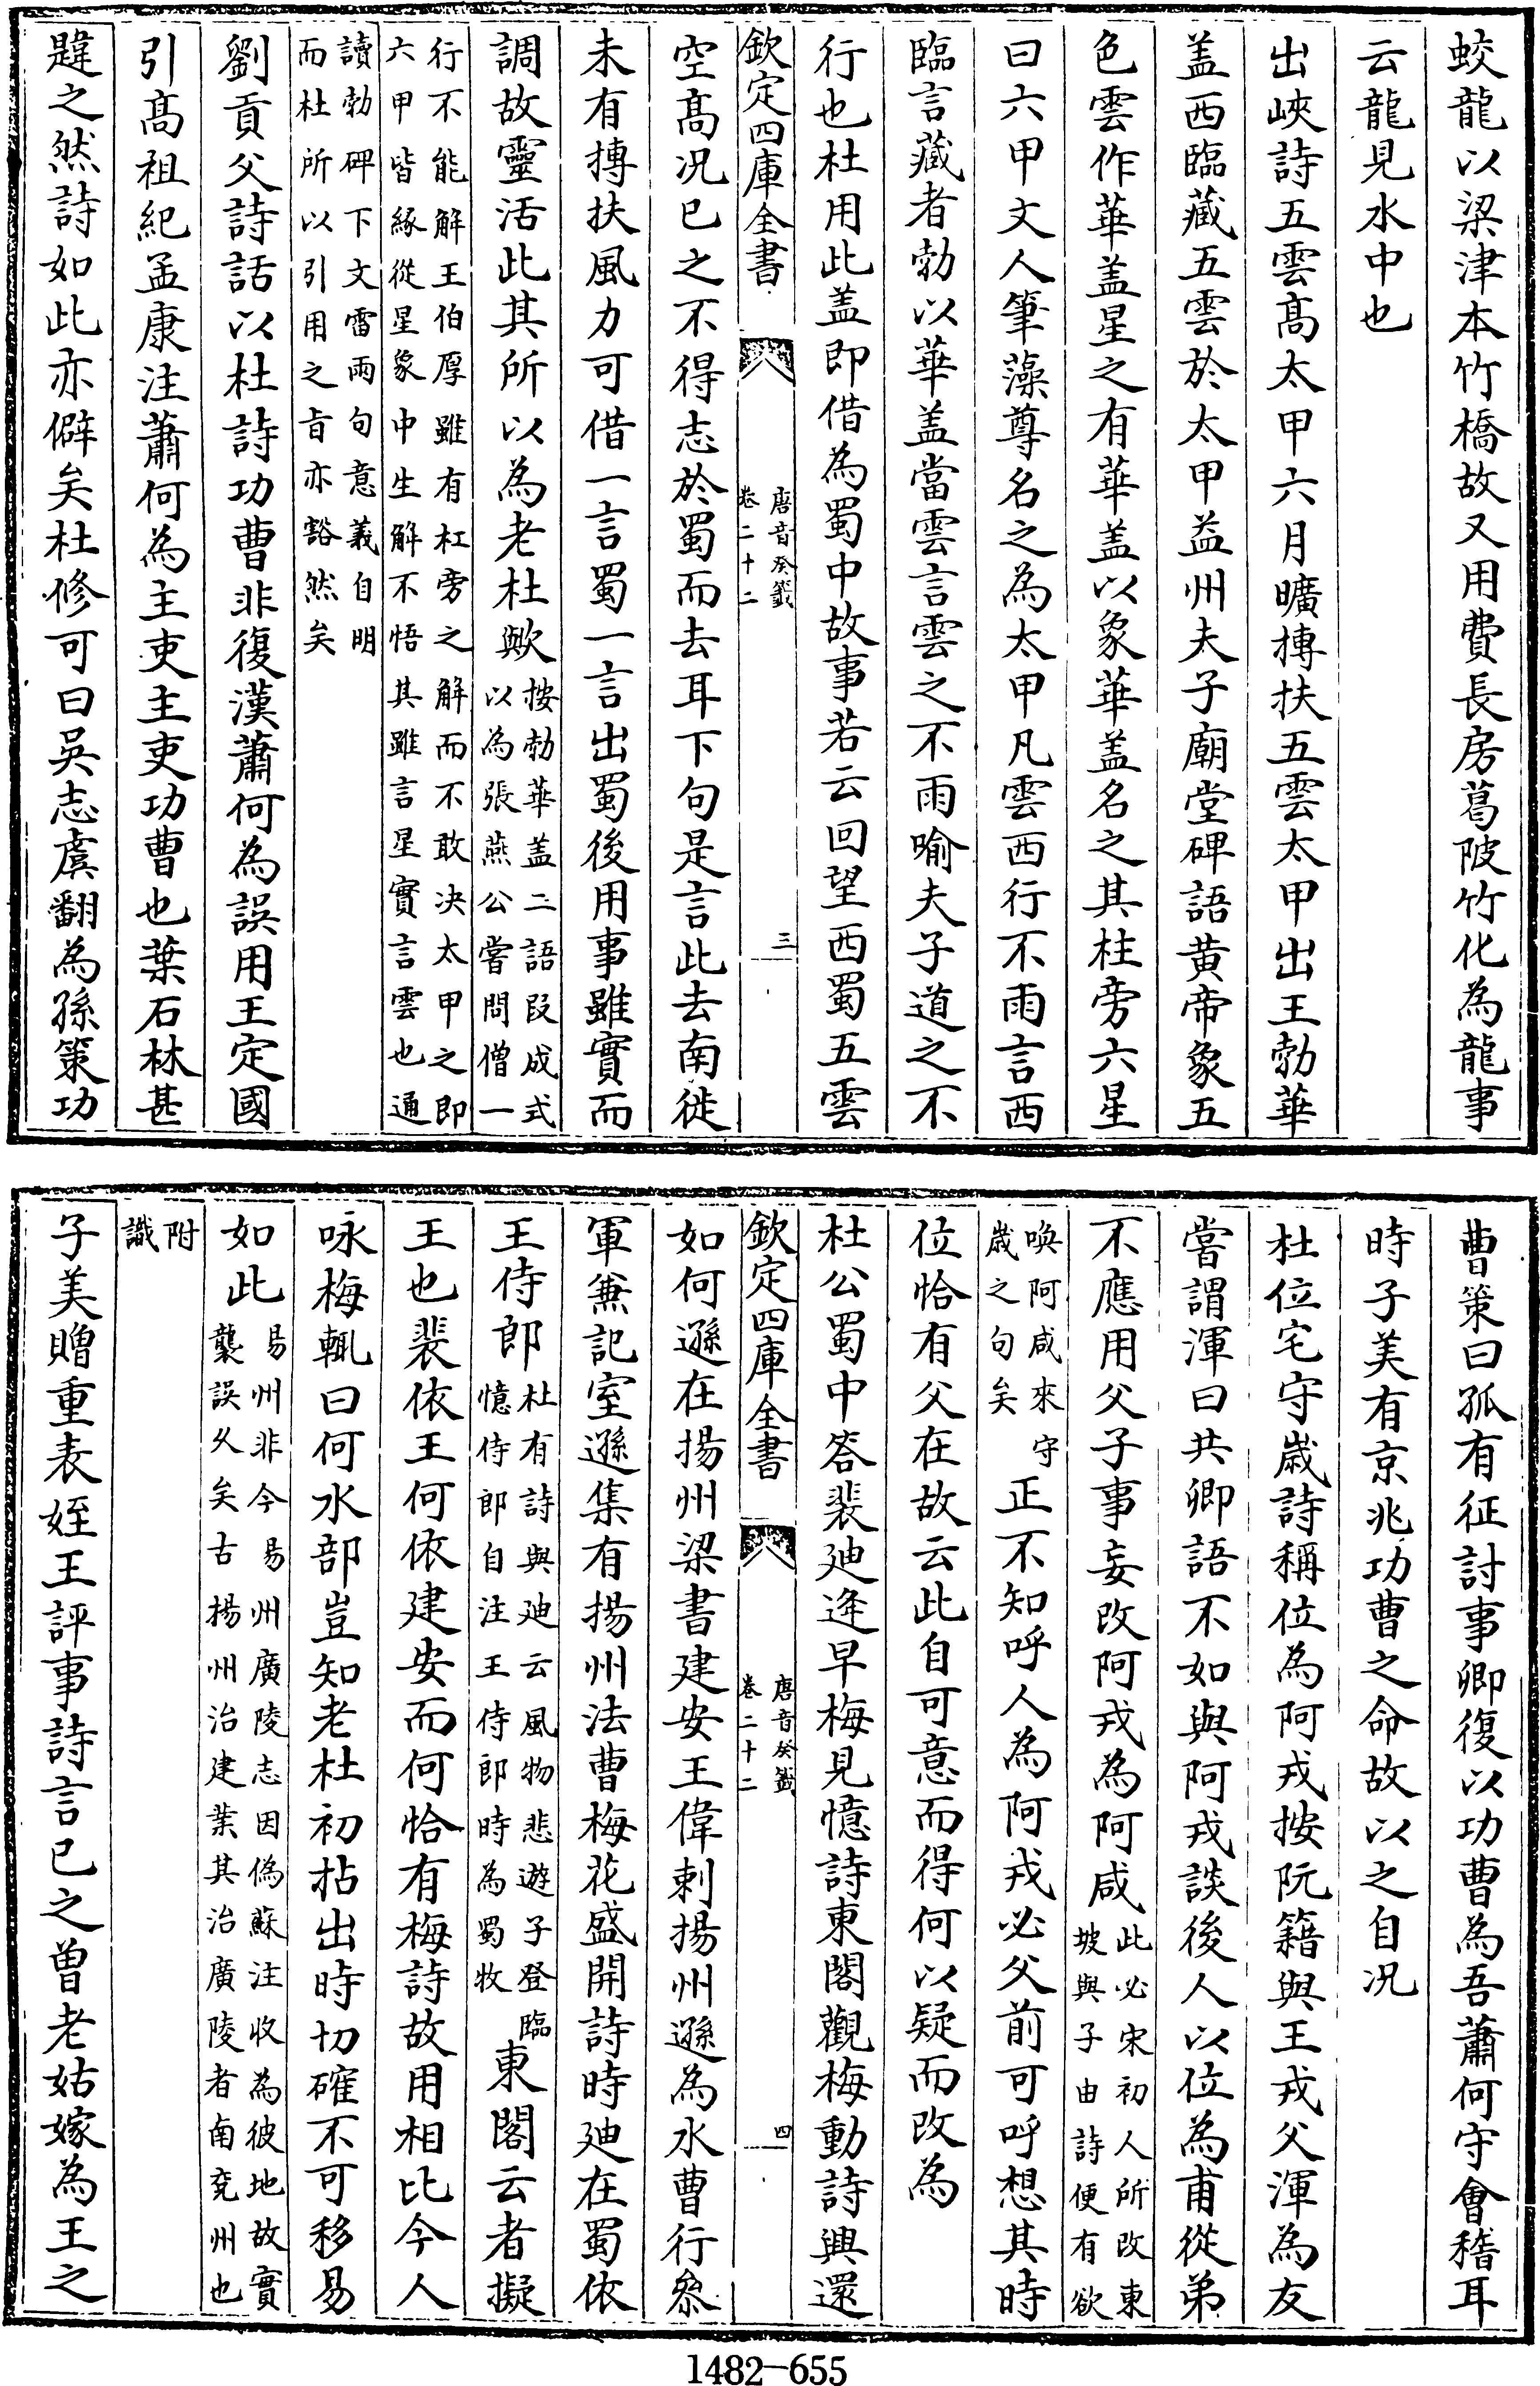 蛟龍以梁津本竹橋故又用費長房葛陂竹化為龍事
云龍見水中也
出峽詩五雲髙太甲六月曠摶扶五雲太甲出王勃華
盖西臨藏五雲於太甲益州夫子廟堂碑語黄帝象五
色雲作華盖星之有華盖以象華盖名之其柱旁六星
曰六甲文人筆藻尊名之為太甲凡雲西行不雨言西
臨言藏者勃以華盖當雲言雲之不雨喻夫子道之不
行也杜用此盖即借為蜀中故事若云回望西蜀五雲
欽定四庫全書
唐音癸籖
卷二十二
三
空髙况已之不得志於蜀而去耳下句是言此去南徙
未有摶扶風力可借一言蜀一言出蜀後用事雖實而
調故靈活此其所以為老杜歟
按勃華盖二語叚成式
以為張燕公嘗問僧一
行不能解王伯厚雖有杠旁之解而不敢决太甲之即
六甲皆縁從星象中生解不悟其雖言星實言雲也通
讀勃碑下文雷雨句意義自明
而杜所以引用之旨亦豁然矣
劉貢父詩話以杜詩功曹非復漢蕭何為誤用王定國
引髙祖紀孟康注蕭何為主吏主吏功曹也葉石林甚
韙之然詩如此亦僻矣杜修可曰吳志虞翻為孫策功
曹策曰孤有征討事卿復以功曹為吾蕭何守會稽耳
時子美有京兆功曹之命故以之自况
杜位宅守歳詩稱位為阿戎按阮籍與王戎父渾為友
嘗謂渾曰共卿語不如與阿戎談後人以位為甫從弟
不應用父子事妄改阿戎為阿咸
此必宋初人所改東
坡與子由詩便有欲
喚阿咸來守
歳之句矣
正不知呼人為阿戎必父前可呼想其時
位恰有父在故云此自可意而得何以疑而改為
杜公蜀中答裴廸逄早梅見憶詩東閣觀梅動詩興還
欽定四庫全書
唐音癸籖
卷二十二
四
如何遜在揚州梁書建安王偉刺揚州遜為水曹行叅
軍兼記室遜集有揚州法曹梅花盛開詩時廸在蜀依
王侍郎
杜有詩與廸云風物悲遊子登臨
憶侍郎自注王侍郎時為蜀牧
東閣云者擬
王也裴依王何依建安而何恰有梅詩故用相比今人
咏梅輒曰何水部豈知老杜初拈出時切確不可移易
如此
易州非今易州廣陵志因偽蘇注收為彼地故實
襲誤乆矣古揚州治建業其治廣陵者南兗州也
附
識
子美贈重表姪王評事詩言已之曾老姑嫁為王之
1482-655